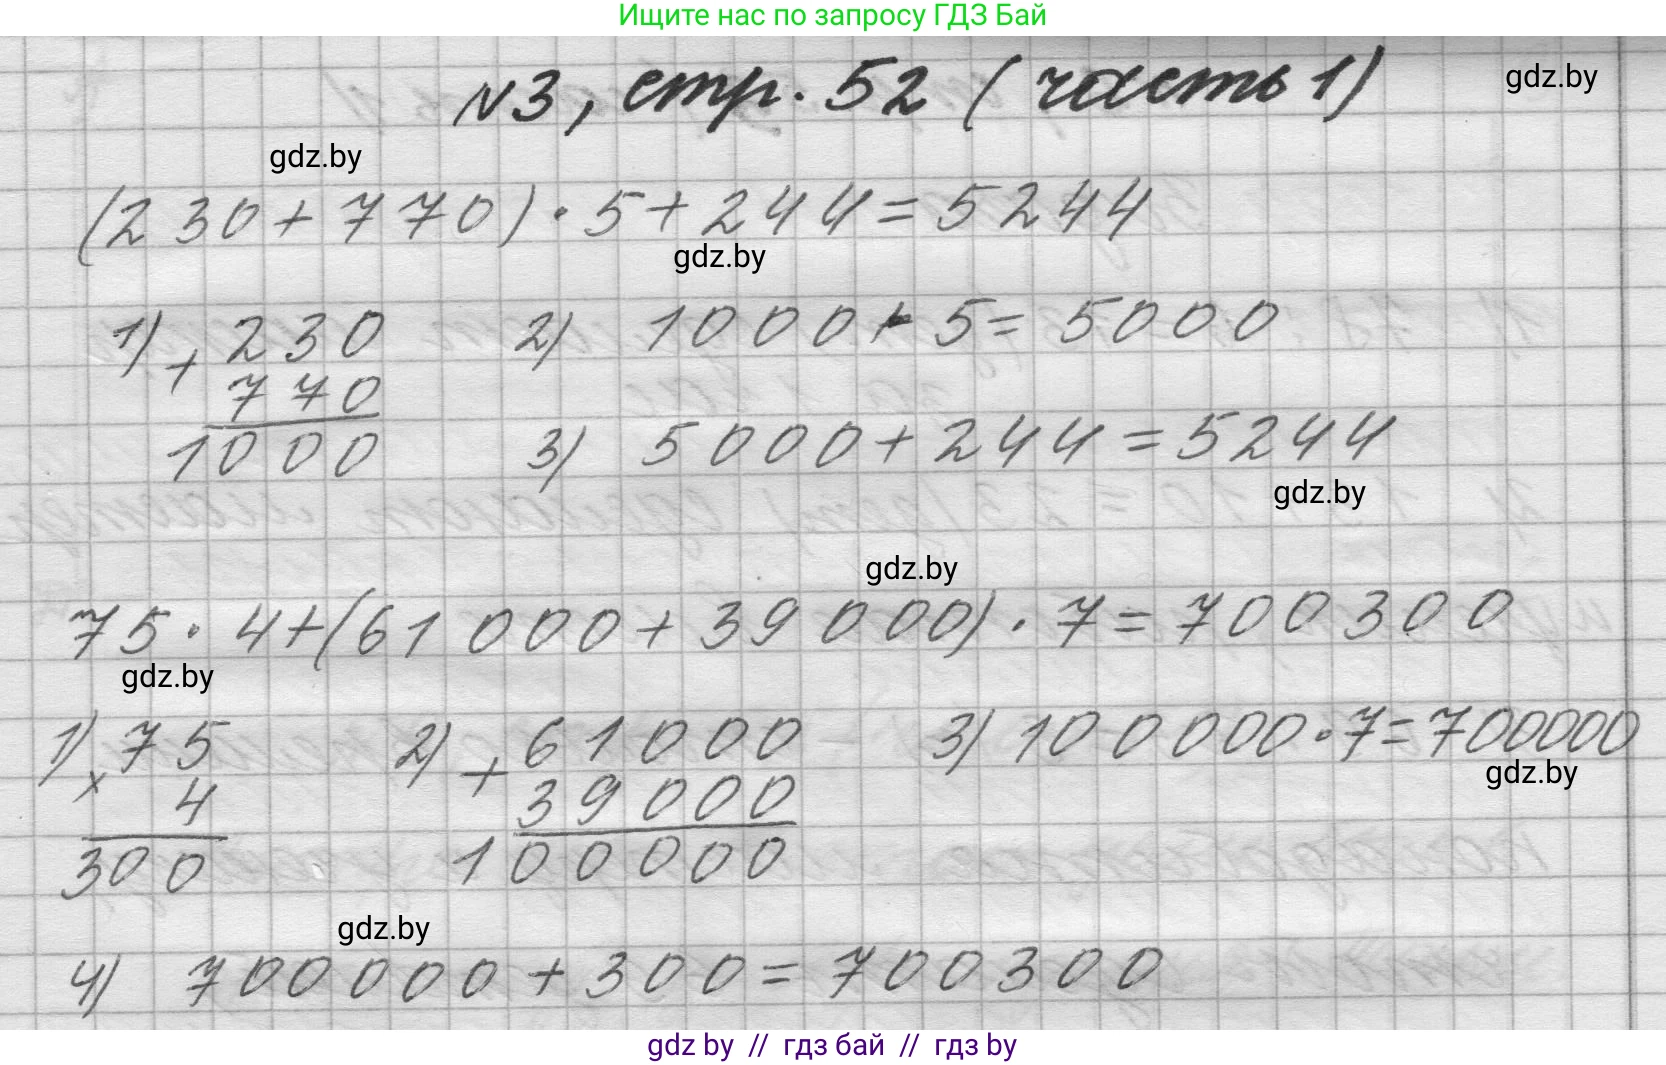 Ищите нас по запросу ГДЗ Бай
№3, стр. 52 (часть 1)
gdz.by
gdz.by
(230+770)·5+244=5244
gdz.by
1) 230 2) 1000·5=5000
+
770
1000 3) 5000+244=5244
gdz.by
gdz.by
75·4+(61000+39000)·7=700300
gdz.by
1) 75 2) 61000 3) 100000·7=700000
× +
4 39000
gdz.by
300 100000
gdz.by
4) 700000+300=700300
gdz by // гдз бай // гдз by